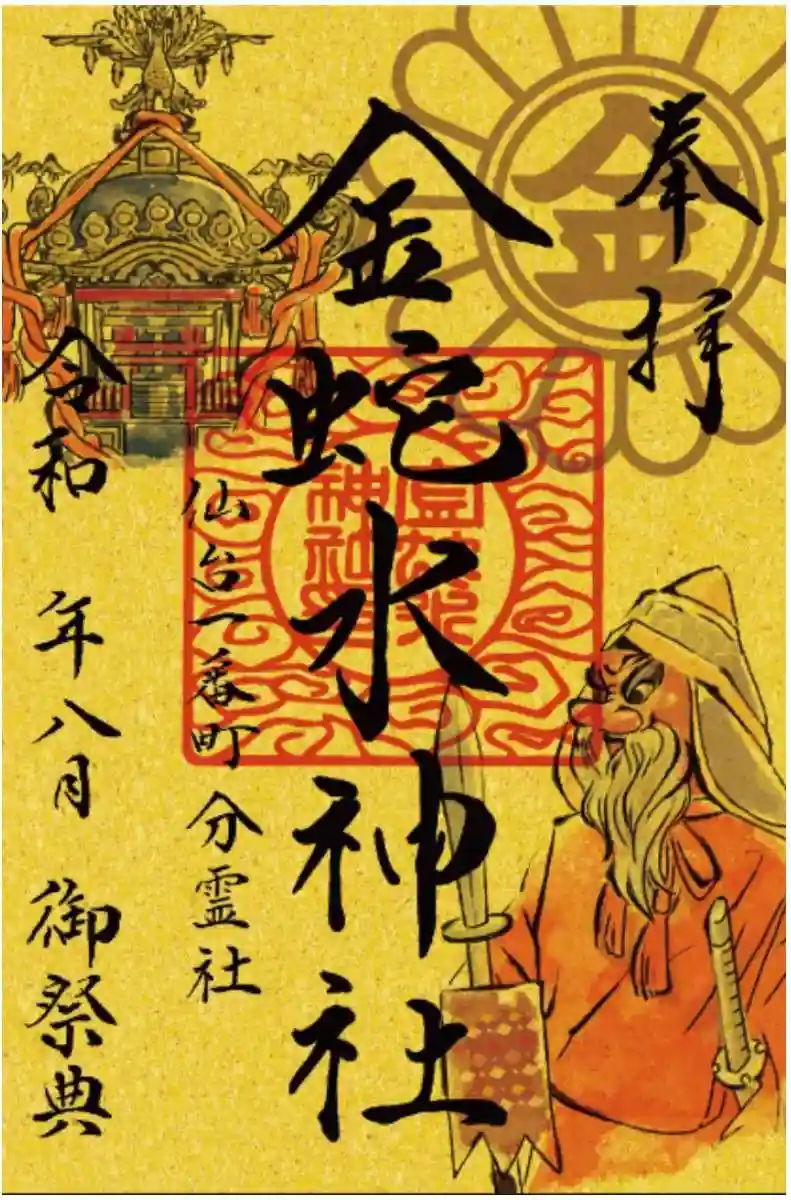 奉拝
金
金蛇水神社
金蛇水神社
仙台一番町分霊社
令和 年八月 御祭典